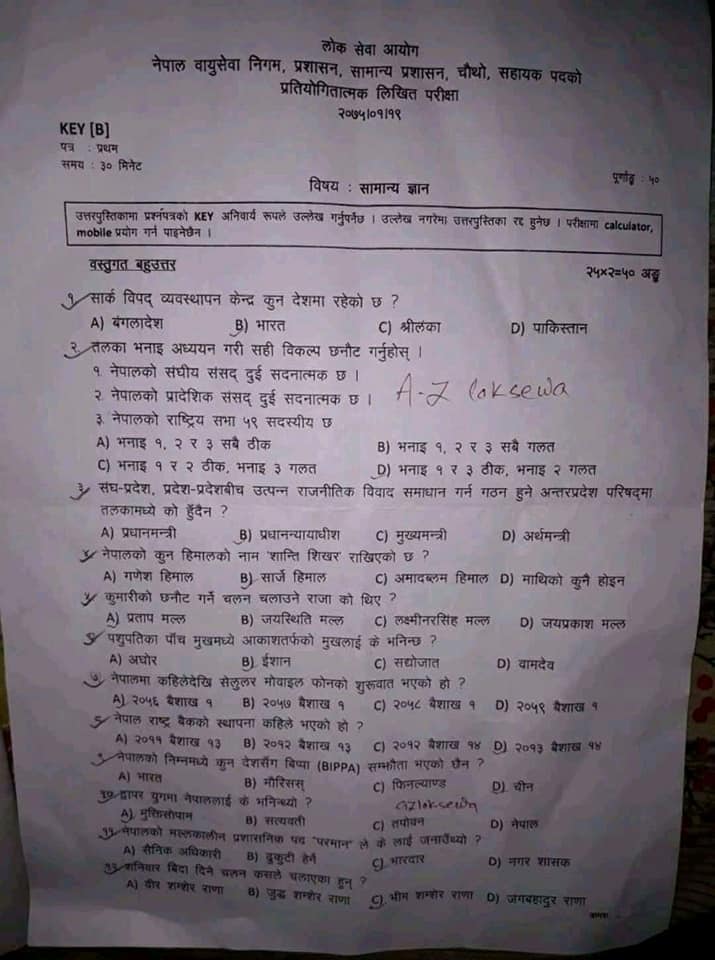 लोक सेवा आयोग
नेपाल वायुसेवा निगम, प्रशासन, सामान्य प्रशासन, चौथो, सहायक पदको
प्रतियोगितात्मक लिखित परीक्षा
२०७५।०१।१९
KEY [B]
पत्र : प्रथम
समय : ३० मिनेट
पूर्णाङ्क : ५०
विषय : सामान्य ज्ञान
उत्तरपुस्तिकामा प्रश्नपत्रको KEY अनिवार्य रूपले उल्लेख गर्नुपर्नेछ । उल्लेख नगरेमा उत्तरपुस्तिका रद्द हुनेछ । परीक्षामा calculator,
mobile प्रयोग गर्न पाइनेछैन ।
वस्तुगत बहुउत्तर
२५×२=५० अङ्क
१ सार्क विपद् व्यवस्थापन केन्द्र कुन देशमा रहेको छ ?
A) बंगलादेश B) भारत C) श्रीलंका D) पाकिस्तान
२. तलका भनाइ अध्ययन गरी सही विकल्प छनौट गर्नुहोस् ।
१. नेपालको संघीय संसद् दुई सदनात्मक छ ।
२. नेपालको प्रादेशिक संसद् दुई सदनात्मक छ । A-Z loksewa
३. नेपालको राष्ट्रिय सभा ५९ सदस्यीय छ
A) भनाइ १, २ र ३ सबै ठीक B) भनाइ १, २ र ३ सबै गलत
C) भनाइ १ र २ ठीक, भनाइ ३ गलत D) भनाइ १ र ३ ठीक, भनाइ २ गलत
३ संघ-प्रदेश, प्रदेश-प्रदेशबीच उत्पन्न राजनीतिक विवाद समाधान गर्न गठन हुने अन्तरप्रदेश परिषद्मा
तलकामध्ये को हुँदैन ?
A) प्रधानमन्त्री B) प्रधानन्यायाधीश C) मुख्यमन्त्री D) अर्थमन्त्री
४ नेपालको कुन हिमालको नाम 'शान्ति शिखर' राखिएको छ ?
A) गणेश हिमाल B) सार्जे हिमाल C) अमादब्लम हिमाल D) माथिको कुनै होइन
५ कुमारीको छनौट गर्ने चलन चलाउने राजा को थिए ?
A) प्रताप मल्ल B) जयस्थिति मल्ल C) लक्ष्मीनरसिंह मल्ल D) जयप्रकाश मल्ल
६ पशुपतिका पाँच मुखमध्ये आकाशतर्फको मुखलाई के भनिन्छ ?
A) अघोर B) ईशान C) सद्योजात D) वामदेव
७ नेपालमा कहिलेदेखि सेलुलर मोवाइल फोनको शुरूवात भएको हो ?
A) २०५६ बैशाख १ B) २०५७ बैशाख १ C) २०५८ बैशाख १ D) २०५९ बैशाख १
८ नेपाल राष्ट्र बैंकको स्थापना कहिले भएको हो ?
A) २०११ बैशाख १३ B) २०१२ बैशाख १३ C) २०१२ बैशाख १४ D) २०१३ बैशाख १४
९ नेपालको निम्नमध्ये कुन देशसँग बिप्पा (BIPPA) सम्झौता भएको छैन ?
A) भारत B) मौरिसस् C) फिनल्याण्ड D) चीन
१० द्वापर युगमा नेपाललाई के भनिन्थ्यो ? azloksewa
A) मुक्तिसोपाम B) सत्यवती C) तपोवन D) नेपाल
११ नेपालको मल्लकालीन प्रशासनिक पद "परमान" ले के लाई जनाउँथ्यो ?
A) सैनिक अधिकारी B) ढुकुटी हेर्ने C) भारदार D) नगर शासक
१२ शनिवार बिदा दिने चलन कसले चलाएका हुन् ?
A) वीर शम्शेर राणा B) जुद्ध शम्शेर राणा C) भीम शम्शेर राणा D) जंगबहादुर राणा
क्रमशः